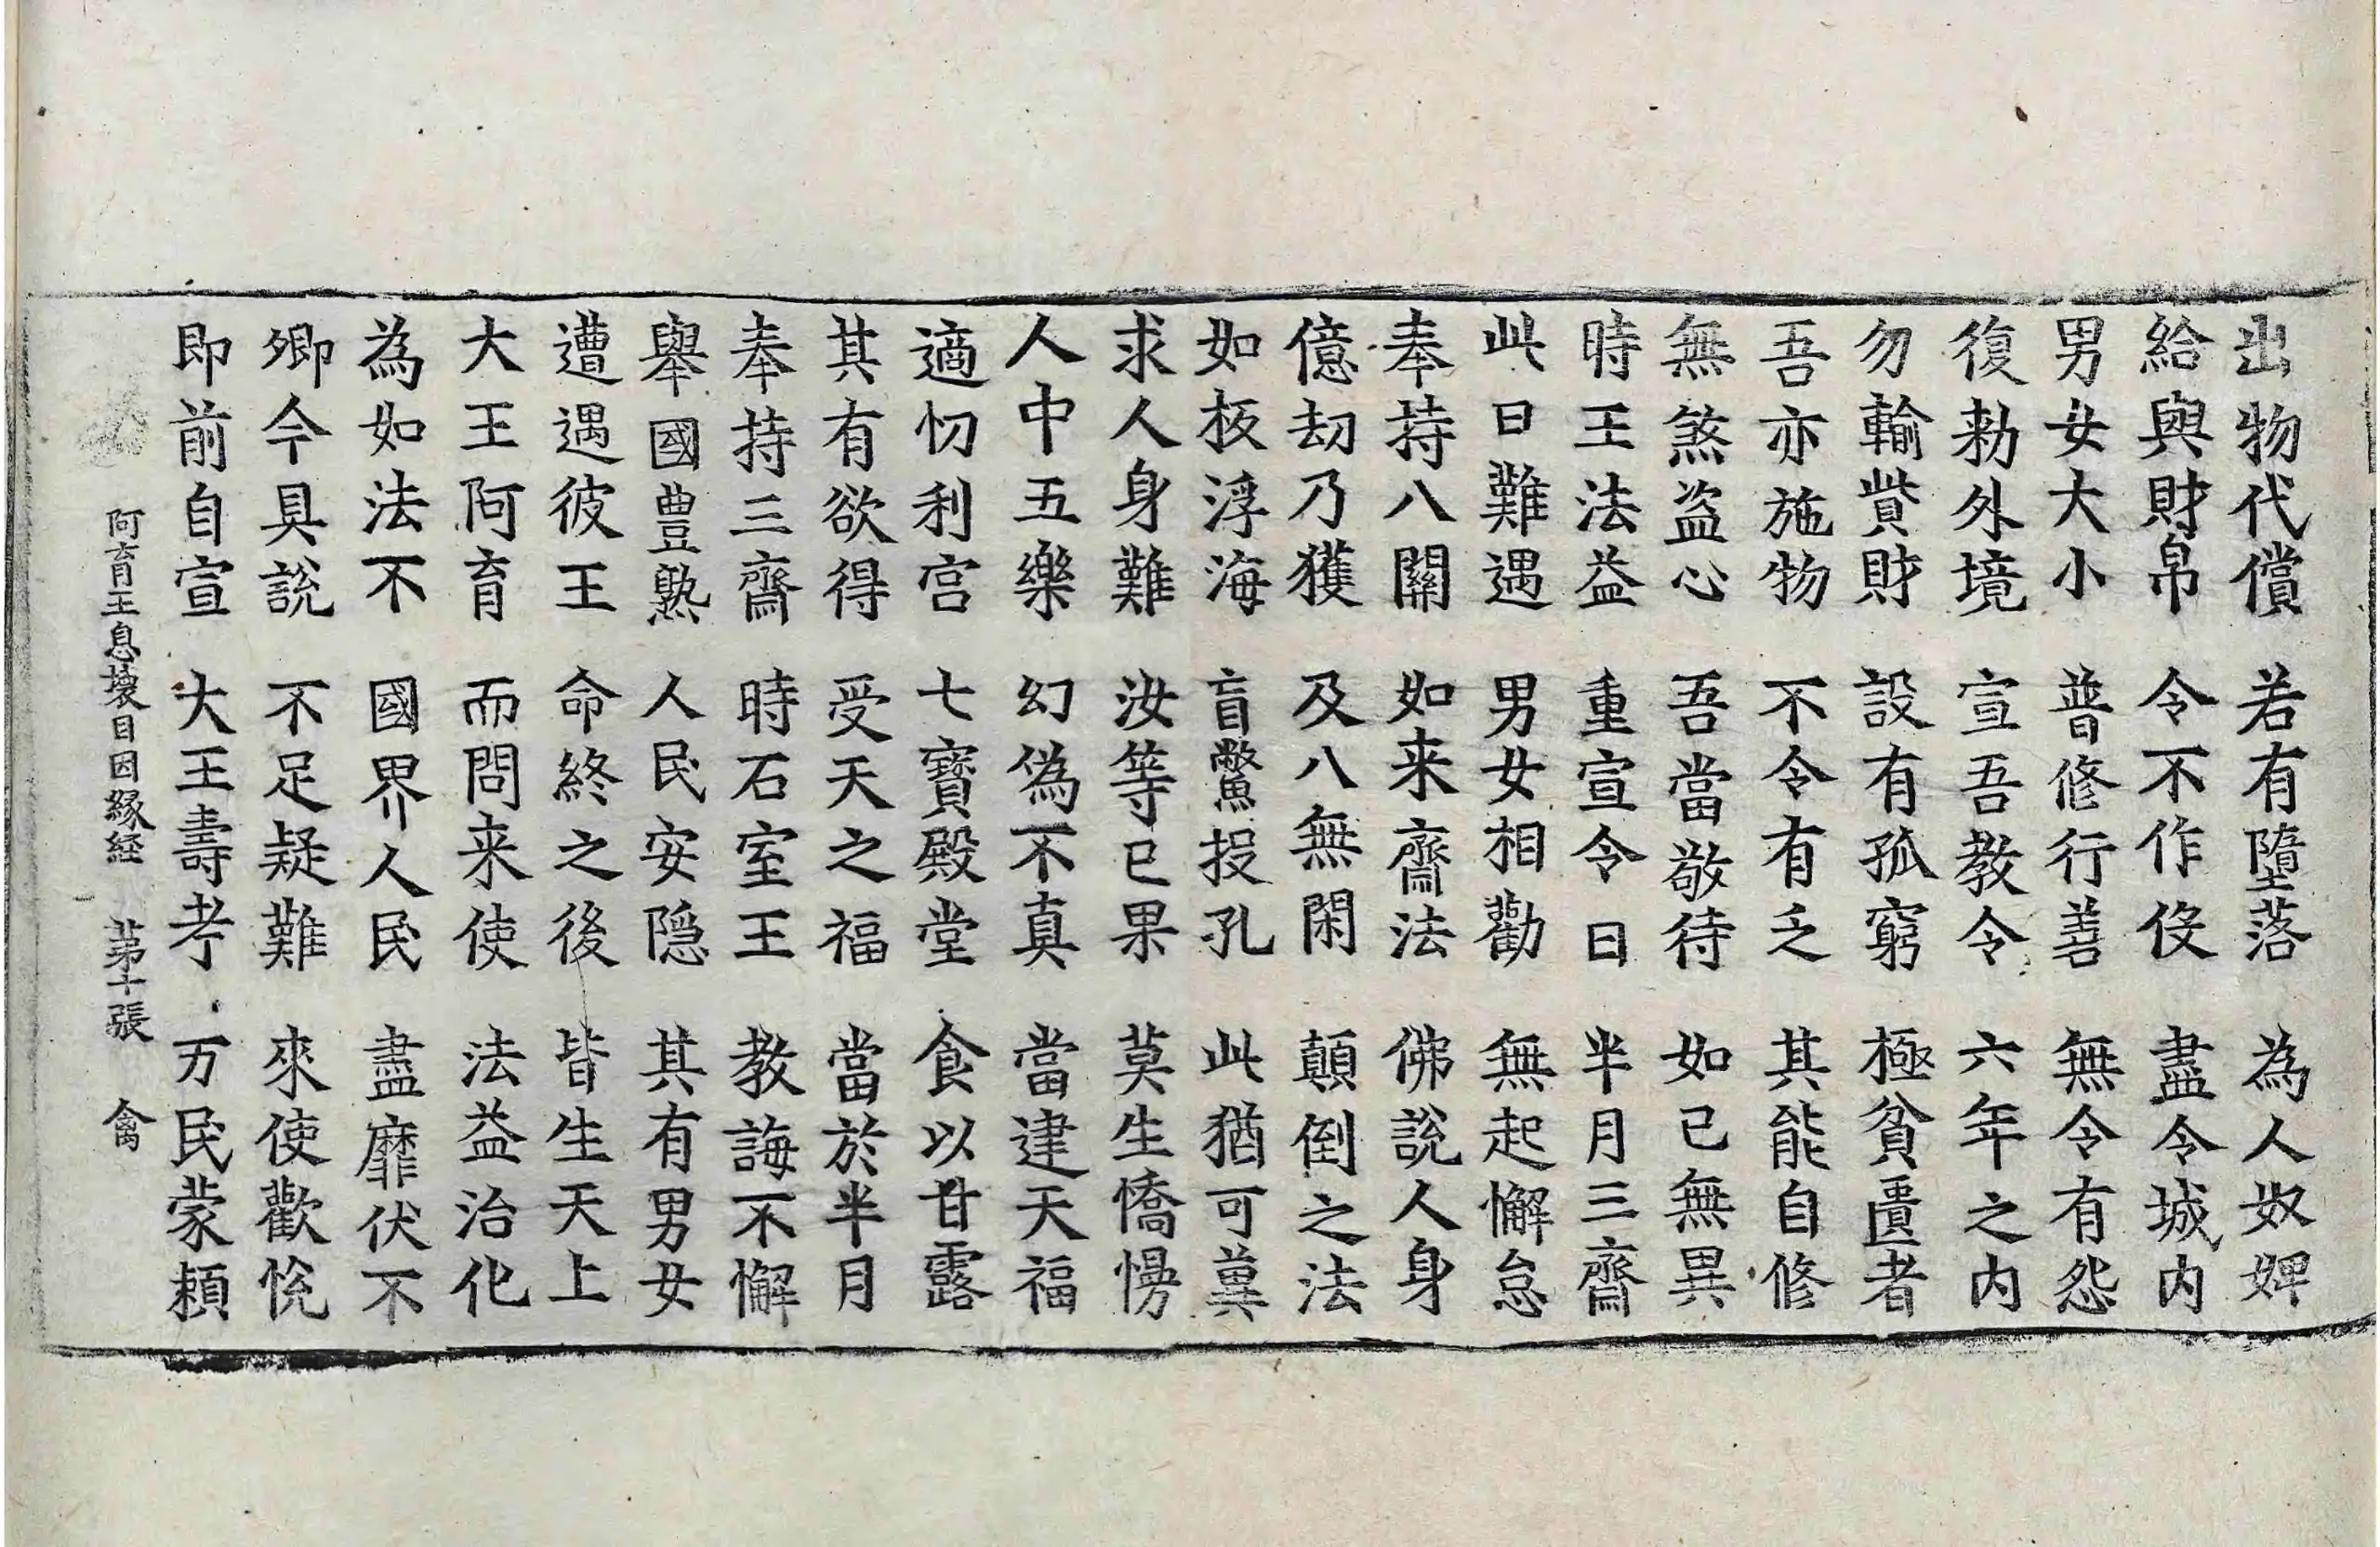 出物代償 若有墮落 為人奴婢
給與財帛 令不作伇 盡令城内
男女大小 普修行善 無令有怨
復勑外境 宣吾教令 六年之内
勿輸貲財 設有孤窮 極貧匱者
吾亦施物 不令有乏 其能自修
無煞盗心 吾當敬待 如己無異
時王法益 重宣令曰 半月三齋
此日難遇 男女相勸 無起懈怠
奉持八關 如来齋法 佛說人身
億劫乃獲 及八無閑 顛倒之法
如板浮海 盲鱉投孔 此猶可兾
求人身難 汝等已果 莫生憍慢
人中五樂 幻偽不真 當建天福
適忉利宫 七寳殿堂 食以甘露
其有欲得 受天之福 當於半月
奉持三齋 時石室王 教誨不懈
舉國豊熟 人民安隠 其有男女
遭遇彼王 命終之後 皆生天上
大王阿育 而問来使 法益治化
為如法不 國界人民 盡靡伏不
卿今具說 不足疑難 來使歡恱
即前自宣 大王壽考 万民蒙頼
阿育王息壞目因縁経 苐十張 禽